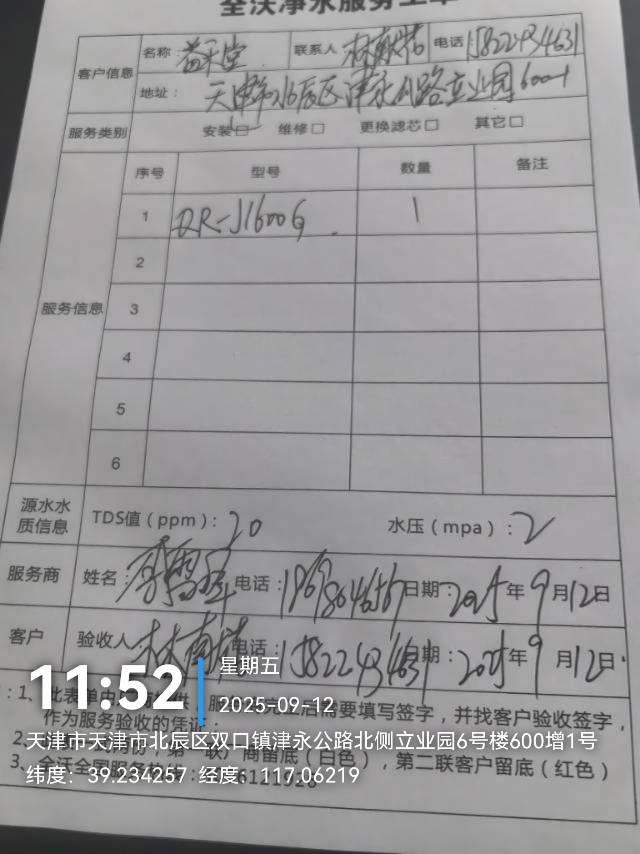 全沃净水服务工单
客户信息
名称：益禾堂 联系人 电话 15822434631
地址：天津市北辰区津永公路立业园600-1
服务类别 安装☑ 维修□ 更换滤芯□ 其它□
服务信息
序号 型号 数量 备注
1 QR-J1600G 1
2
3
4
5
6
源水水质信息
TDS值（ppm）：20 水压（mpa）：2
服务商 姓名： 电话： 日期：2025年9月12日
客户 验收人 电话：15822434631 日期：2025年9月12日
作为服务验收的凭证.
服务完工后需要填写签字，并找客户验收签字，
商留底（白色），第二联客户留底（红色）
3、全沃全国服务热线：
11:52
星期五
2025-09-12
天津市天津市北辰区双口镇津永公路北侧立业园6号楼600增1号
纬度：39.234257 经度：117.06219